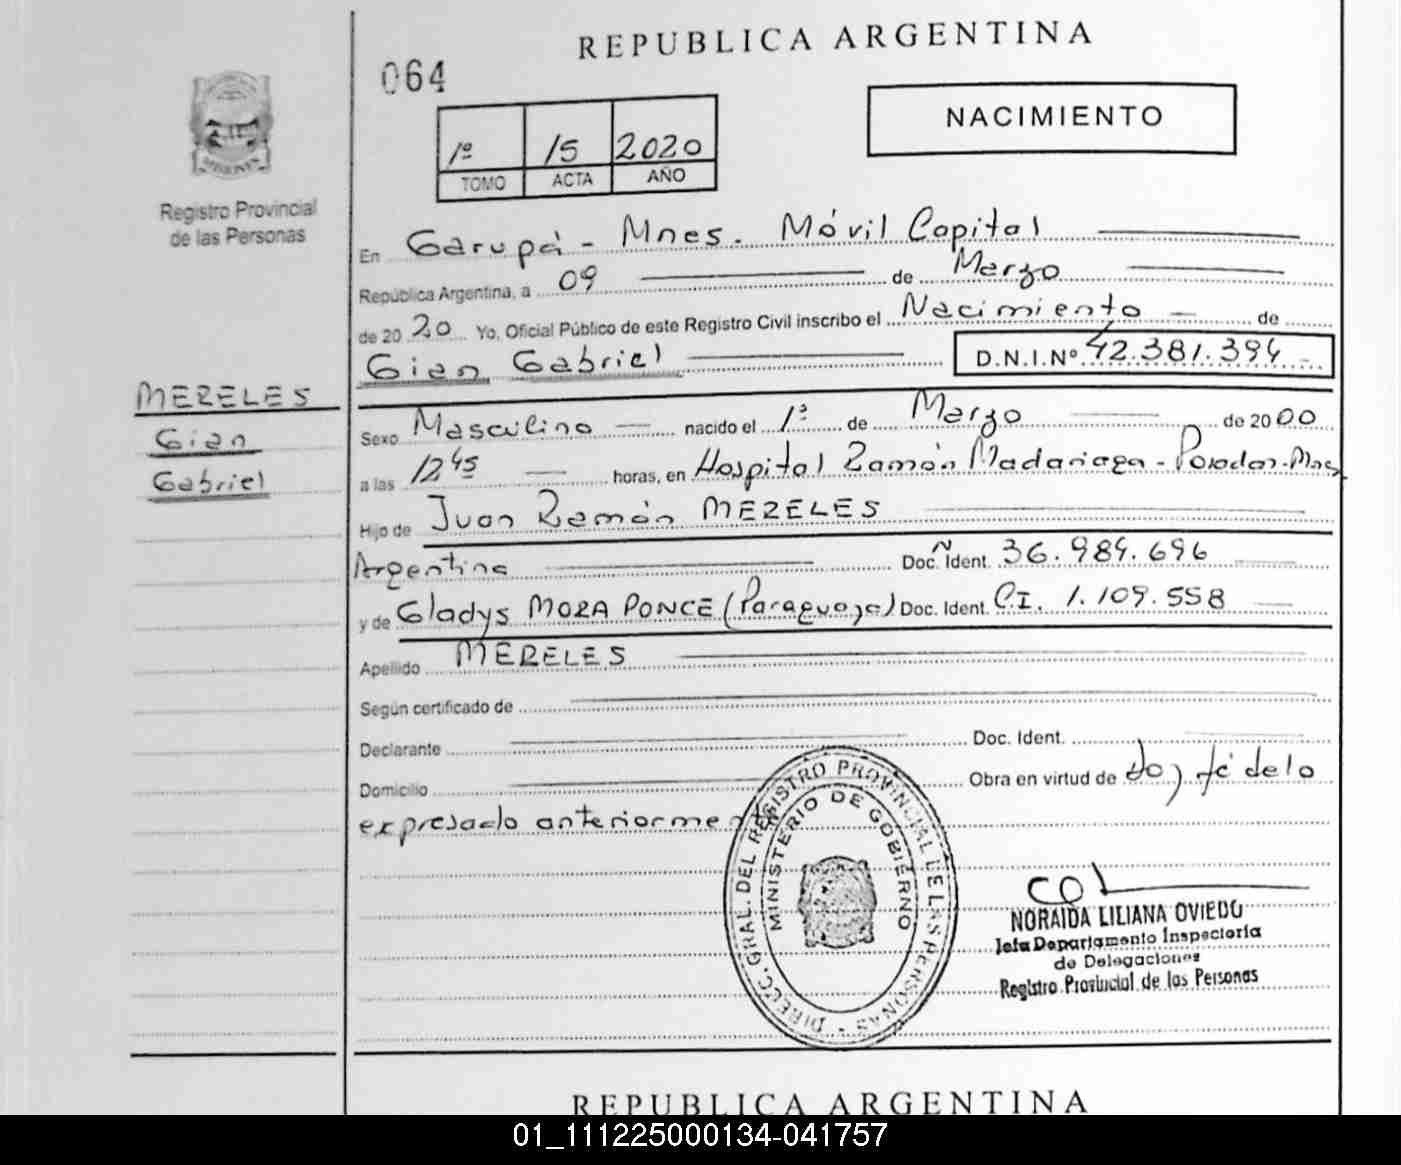 REPUBLICA ARGENTINA
064
NACIMIENTO
1º 15 2020
TOMO ACTA AÑO
Registro Provincial
de las Personas
En Garupá - Mnes. Móvil Capital
República Argentina, a 09 de Marzo
de 20 20 Yo, Oficial Público de este Registro Civil inscribo el Nacimiento de
Gian Gabriel D.N.I.Nº 42.381.394
MERELES
Gian
Gabriel
Sexo Masculino nacido el 1º de Marzo de 20 00
a las 12 45 horas, en Hospital Ramón Madariaga - Posadas - Mnes
Hijo de Juan Ramón MERELES
Argentina Doc. Ident. Nº 36.984.696
y de Gladys MORA PONCE (Paraguaya) Doc. Ident. C.I. 1.109.558
Apellido MERELES
Según certificado de
Declarante Doc. Ident.
Domicilio Obra en virtud de doy fé de lo
expresado anteriormente
DIRECC. GRAL. DEL REGISTRO PROVINCIAL DE LAS PERSONAS
MINISTERIO DE GOBIERNO
NORAIDA LILIANA OVIEDO
Jefa Departamento Inspectoría
de Delegaciones
Registro Provincial de las Personas
REPUBLICA ARGENTINA
01_111225000134-041757